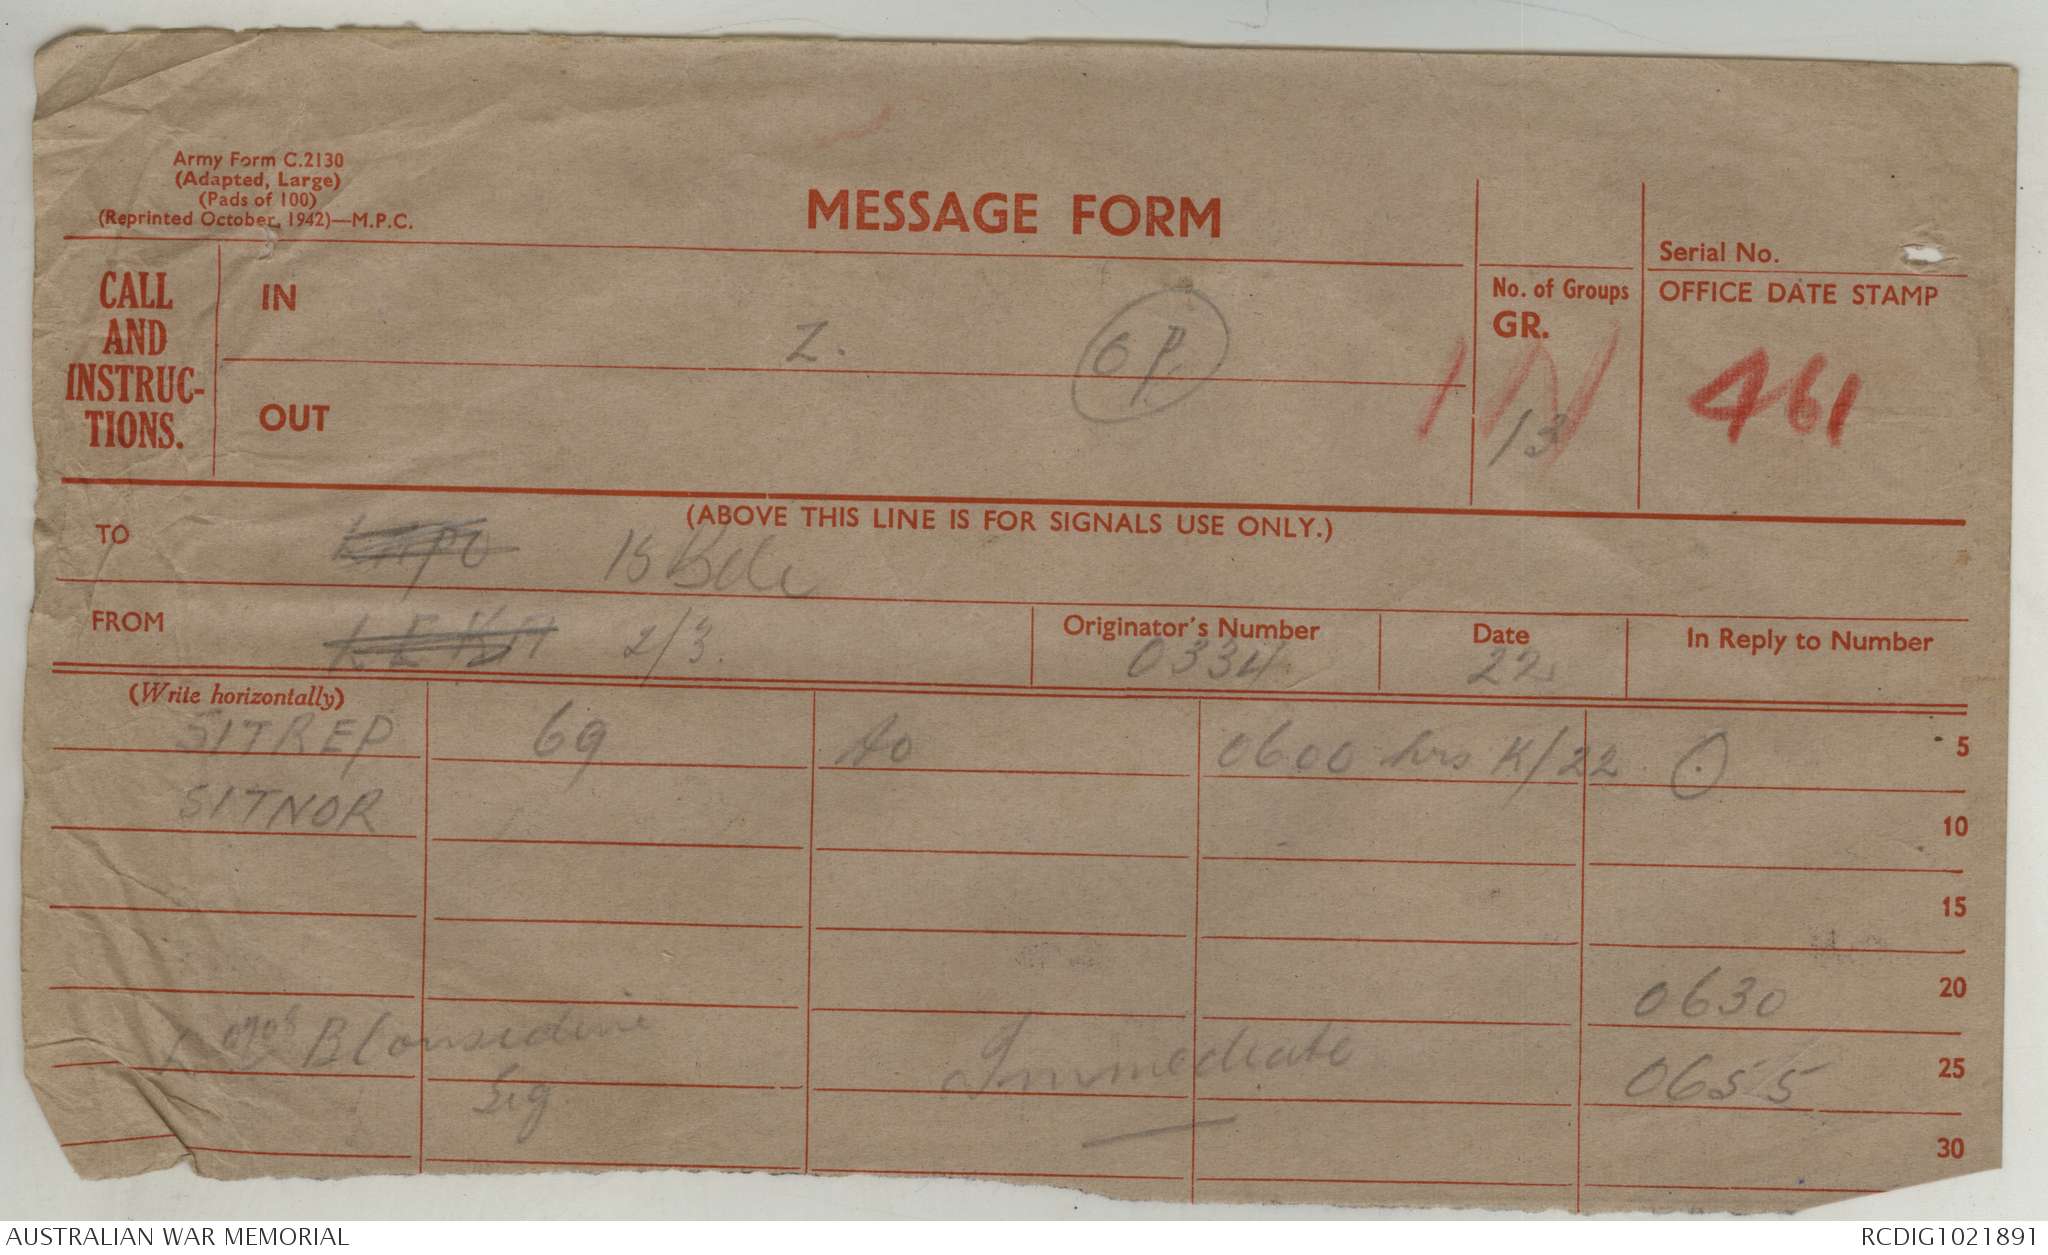 Army Form C.2130
(Adapted, Large)
(Pads of 100)
(Reprinted October, 1942)—M.P.C.
MESSAGE FORM
Serial No.
CALL
AND
INSTRUC-
TIONS.
IN
Z.
OP.
No. of Groups
GR.
13
OFFICE DATE STAMP
461
OUT
(ABOVE THIS LINE IS FOR SIGNALS USE ONLY.)
TO
15 Bde
FROM
2/3.
Originator's Number
0334
Date
22
In Reply to Number
(Write horizontally)
SITREP 69 to 0600 hrs K/22 5
SITNOR 10
15
0630 20
Immediate 0655 25
Sig
30
AUSTRALIAN WAR MEMORIAL
RCDIG1021891